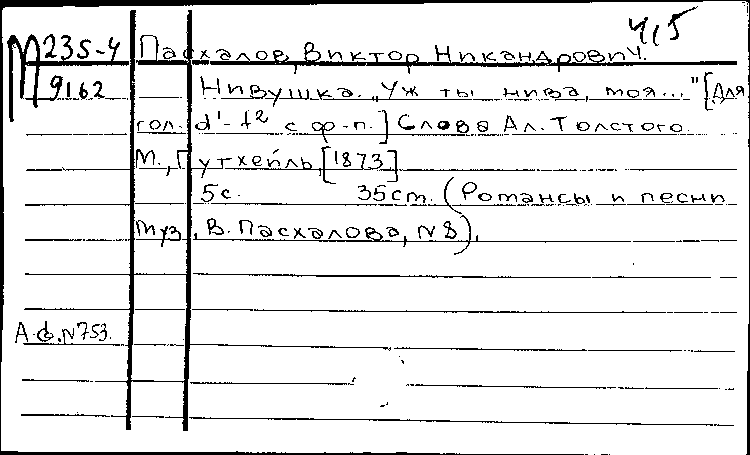 Ч15
М 235-4 Пасхалов, Виктор Никандрович.
9162 Нивушка. „Уж ты нива, моя..." [Для
гол. d¹-f² с ф-п.] Слова Ал. Толстого.
М., Гутхейль, [1873]
5с. 35cm. (Романсы и песни
муз. В. Пасхалова, N8).
А.Ф. N753.